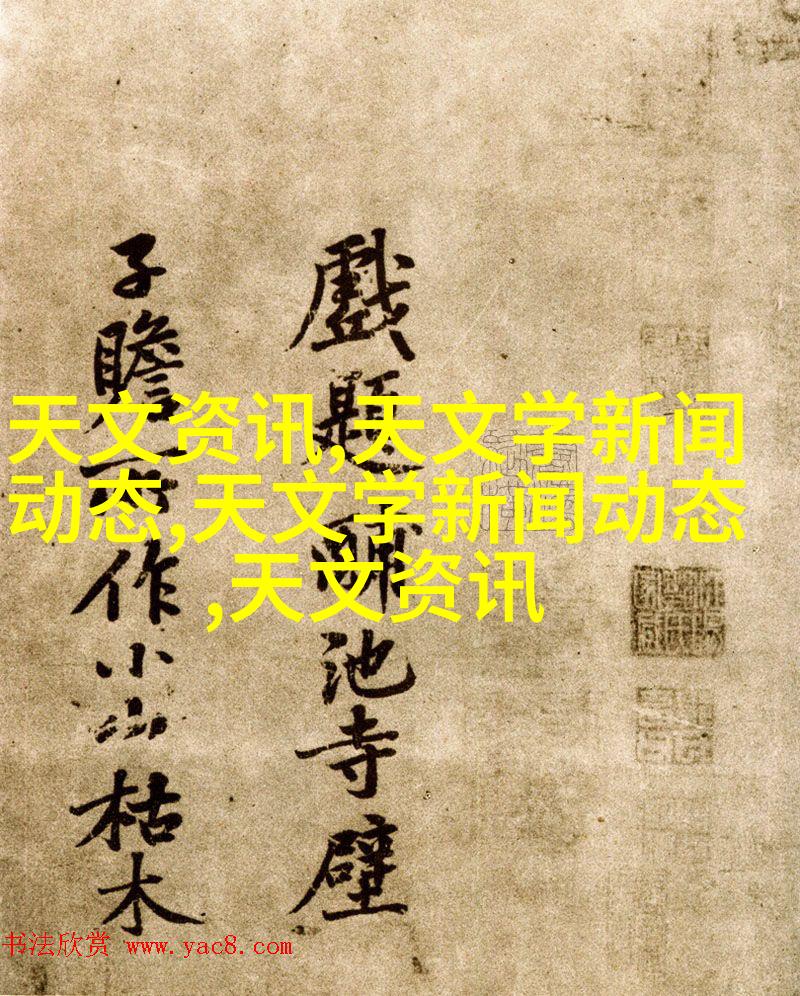 戲題池寺壁
子瞻作小山枯木
天文资讯,天文学新闻
动态,天文学新闻动态
,天文资讯
书法欣赏 www.yac8.com